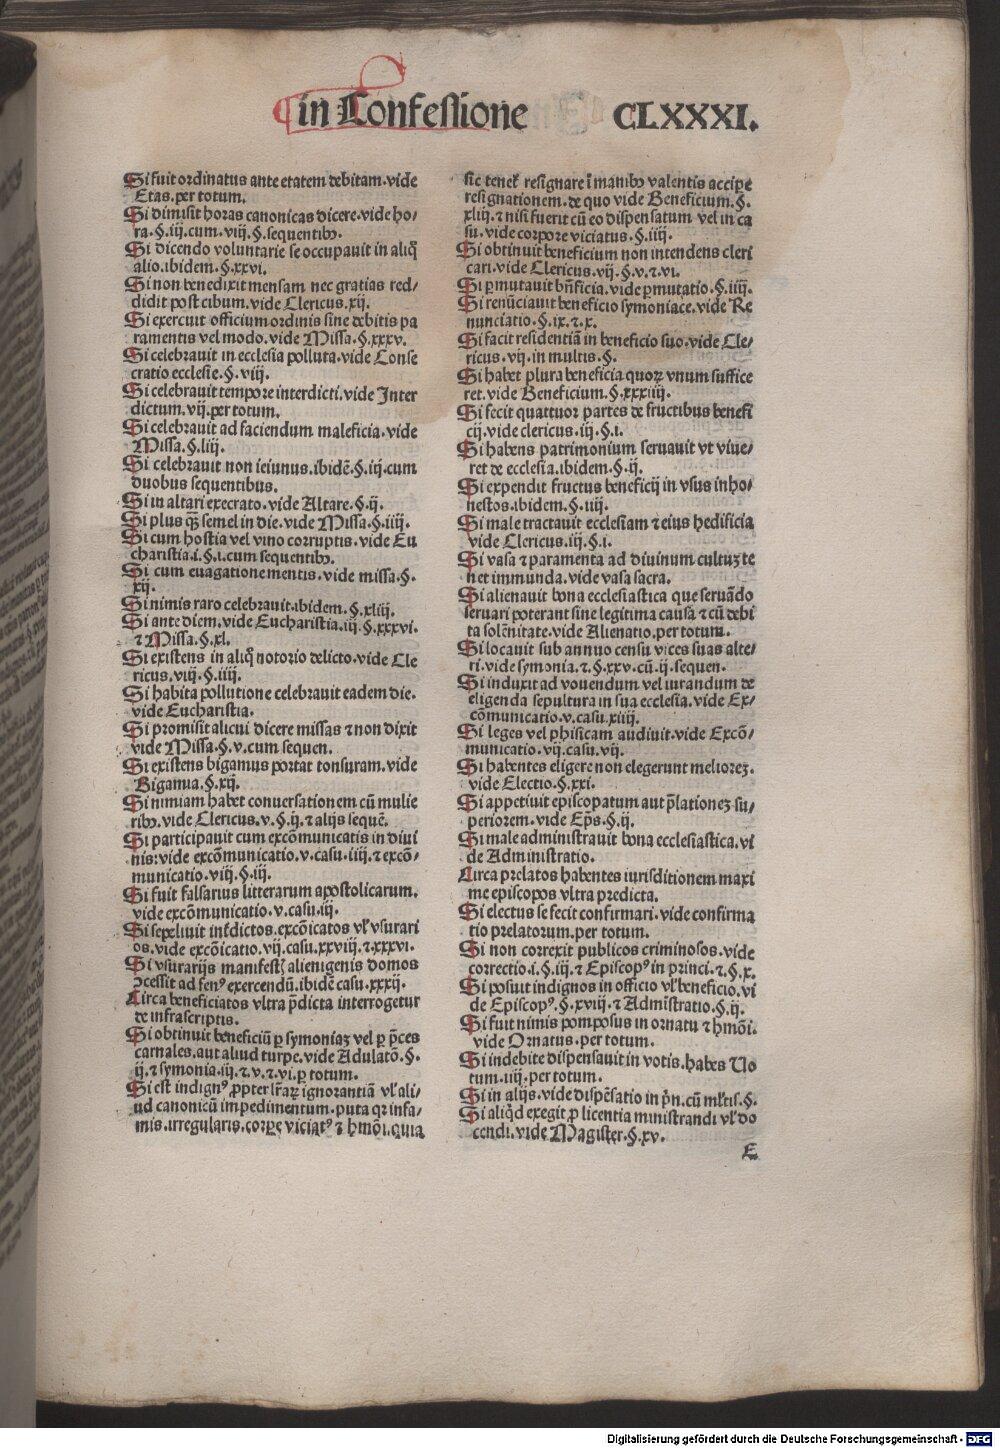 in Confessione CLXXXI.
Si fuit ordinatus ante etatem debitam. vide
Etas. per totum.
Si dimisit horas canonicas dicere. vide ho/
ra. §. iij. cum. viij. §. sequentibꝰ.
Si dicendo voluntarie se occupauit in aliq̃
alio. ibidem. §. xxvi.
Si non benedixit mensam nec gratias red/
didit post cibum. vide Clericus. xij.
Si exercuit officium ordinis sine debitis pa
ramentis vel modo. vide Missa. §. xxxv.
Si celebrauit in ecclesia polluta. vide Conse
cratio ecclesie. §. viij.
Si celebrauit tempore interdicti. vide Inter
dictum. vij. per totum.
Si celebrauit ad faciendum maleficia. vide
Missa. §. liij.
Si celebrauit non ieiunus. ibidē. §. iij. cum
duobus sequentibus.
Si in altari execrato. vide Altare. §. ij.
Si plus qȝ semel in die. vide Missa. §. iiij.
Si cum hostia vel vino corruptis. vide Eu
charistia. i. §. i. cum sequentibꝰ.
Si cum euagatione mentis. vide missa. §.
xij.
Si nimis raro celebrauit. ibidem. §. xliij.
Si ante diem. vide Eucharistia. iij. §. xxxvi.
⁊ Missa. §. xl.
Si existens in aliq̃ notorio delicto. vide Cle
ricus. viij. §. iiij.
Si habita pollutione celebrauit eadem die.
vide Eucharistia.
Si promisit alicui dicere missas ⁊ non dixit
vide Missa. §. v. cum sequen.
Si existens bigamus portat tonsuram. vide
Bigamia. §. xij.
Si nimiam habet conuersationem cū mulie
ribꝰ. vide Clericus. v. §. ij. ⁊ alijs sequē.
Si participauit cum excōmunicatis in diui
nis: vide excōmunicatio. v. casu. iiij. ⁊ excō/
municatio. viij. §. iij.
Si fuit falsarius litterarum apostolicarum.
vide excōmunicatio. v. casu. iij.
Si sepeliuit int̃dictos. excōicatos vl̃ vsurari
os. vide excōicatio. vij. casu. xxviij. ⁊ xxxvi.
Si vsurarijs manifestꝭ alienigenis domos
ꝯcessit ad fenꝰ exercendū. ibidē casu. xxxij.
Circa beneficiatos vltra p̃dicta interrogetur
de infrascriptis.
Si obtinuit beneficiū ꝑ symoniaȝ vel ꝑ p̃ces
carnales. aut aliud turpe. vide Adulatō. §.
ij. ⁊ symonia. iij. ⁊ v. ⁊ vi. ꝑ totum.
Si est indignꝰ ꝓpter lr̃aꝝ ignorantiā vl̃ ali/
ud canonicū impedimentum. puta qr infa/
mis. irregularis. corꝑe viciatꝰ ⁊ hmōi. quia
sic tenet̃ resignare ī manibꝰ valentis acciꝑe
resignationem. de quo vide Beneficium. §.
xliij. ⁊ nisi fuerit cū eo dispensatum vel in ca
su. vide corpore viciatus. §. iiij.
Si obtinuit beneficium non intendens cleri
cari. vide Clericus. vij. §. v. ⁊ vi.
Si ꝑmutauit bn̄ficia. vide ꝑmutatio. §. iiij.
Si renūciauit beneficio symoniace. vide Re
nunciatio. §. ix. ⁊ x.
Si facit residentiā in beneficio suo. vide Cle/
ricus. vij. in multis. §.
Si habet plura beneficia quoꝝ vnum suffice
ret. vide Beneficium. §. xxxiiij.
Si fecit quattuor partes de fructibus benefi
cij. vide clericus. iij. §. i.
Si habens patrimonium seruauit vt viue/
ret de ecclesia. ibidem. §. ij.
Si expendit fructus beneficij in vsus inho/
nestos. ibidem. §. iiij.
Si male tractauit ecclesiam ⁊ eius hedificia
vide Clericus. iij. §. i.
Si vasa ⁊ paramenta ad diuinum cultuȝ te
net immunda. vide vasa sacra.
Si alienauit bona ecclesiastica que seruādo
seruari poterant sine legitima causa ⁊ cū debi
ta solēnitate. vide Alienatio. per totum.
Si locauit sub annuo censu vices suas alte/
ri. vide symonia. ⁊. §. xxv. cū. ij. sequen.
Si induxit ad vouendum vel iurandum de
eligenda sepultura in sua ecclesia. vide Ex/
cōmunicatio. v. casu. xiiij.
Si leges vel phisicam audiuit. vide Excō/
municatio. vij. casu. vij.
Si habentes eligere non elegerunt melioreȝ.
vide Electio. §. xxi.
Si appetiuit episcopatum aut p̃lationeȝ su/
periorem. vide Ep̄s. §. ij.
Si male administrauit bona ecclesiastica. vi
de Administratio.
Circa prelatos habentes iurisditionem maxi
me episcopos vltra predicta.
Si electus se fecit confirmari. vide confirma
tio prelatorum. per totum.
Si non correxit publicos criminosos. vide
correctio. i. §. iij. ⁊ Episcopꝰ in princi. ⁊. §. x.
Si posuit indignos in officio vl̃ beneficio. vi
de Episcopꝰ. §. xviij. ⁊ Admīstratio. §. ij.
Si fuit nimis pomposus in ornatu ⁊ hmōi.
vide Ornatus. per totum.
Si indebite dispensauit in votis. habes Vo
tum. iiij. per totum.
Si in alijs. vide dispēsatio in p̃n. cū ml̃tis. §.
Si aliq̃d exegit ꝓ licentia ministrandi vl̃ do
cendi. vide Magister. §. xv.
E
Digitalisierung gefördert durch die Deutsche Forschungsgemeinschaft - DFG